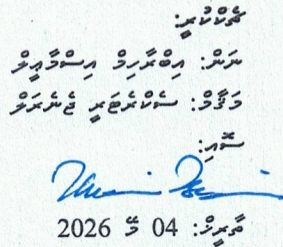 ޗެކްކުރީ:
ނަން: އިބްރާހިމް އިސްމާޢީލް
މަޤާމް: ސެކްރެޓަރީ ޖެނެރަލް
ސޮއި:
ތާރީޚް: 04 މޭ 2026